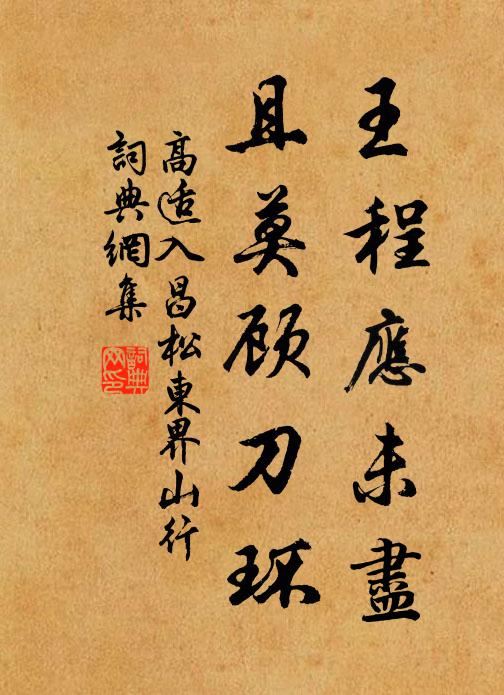 王程應未盡
且莫顾刀环
高适入昌松東界山行
詞典網集
詞典網印